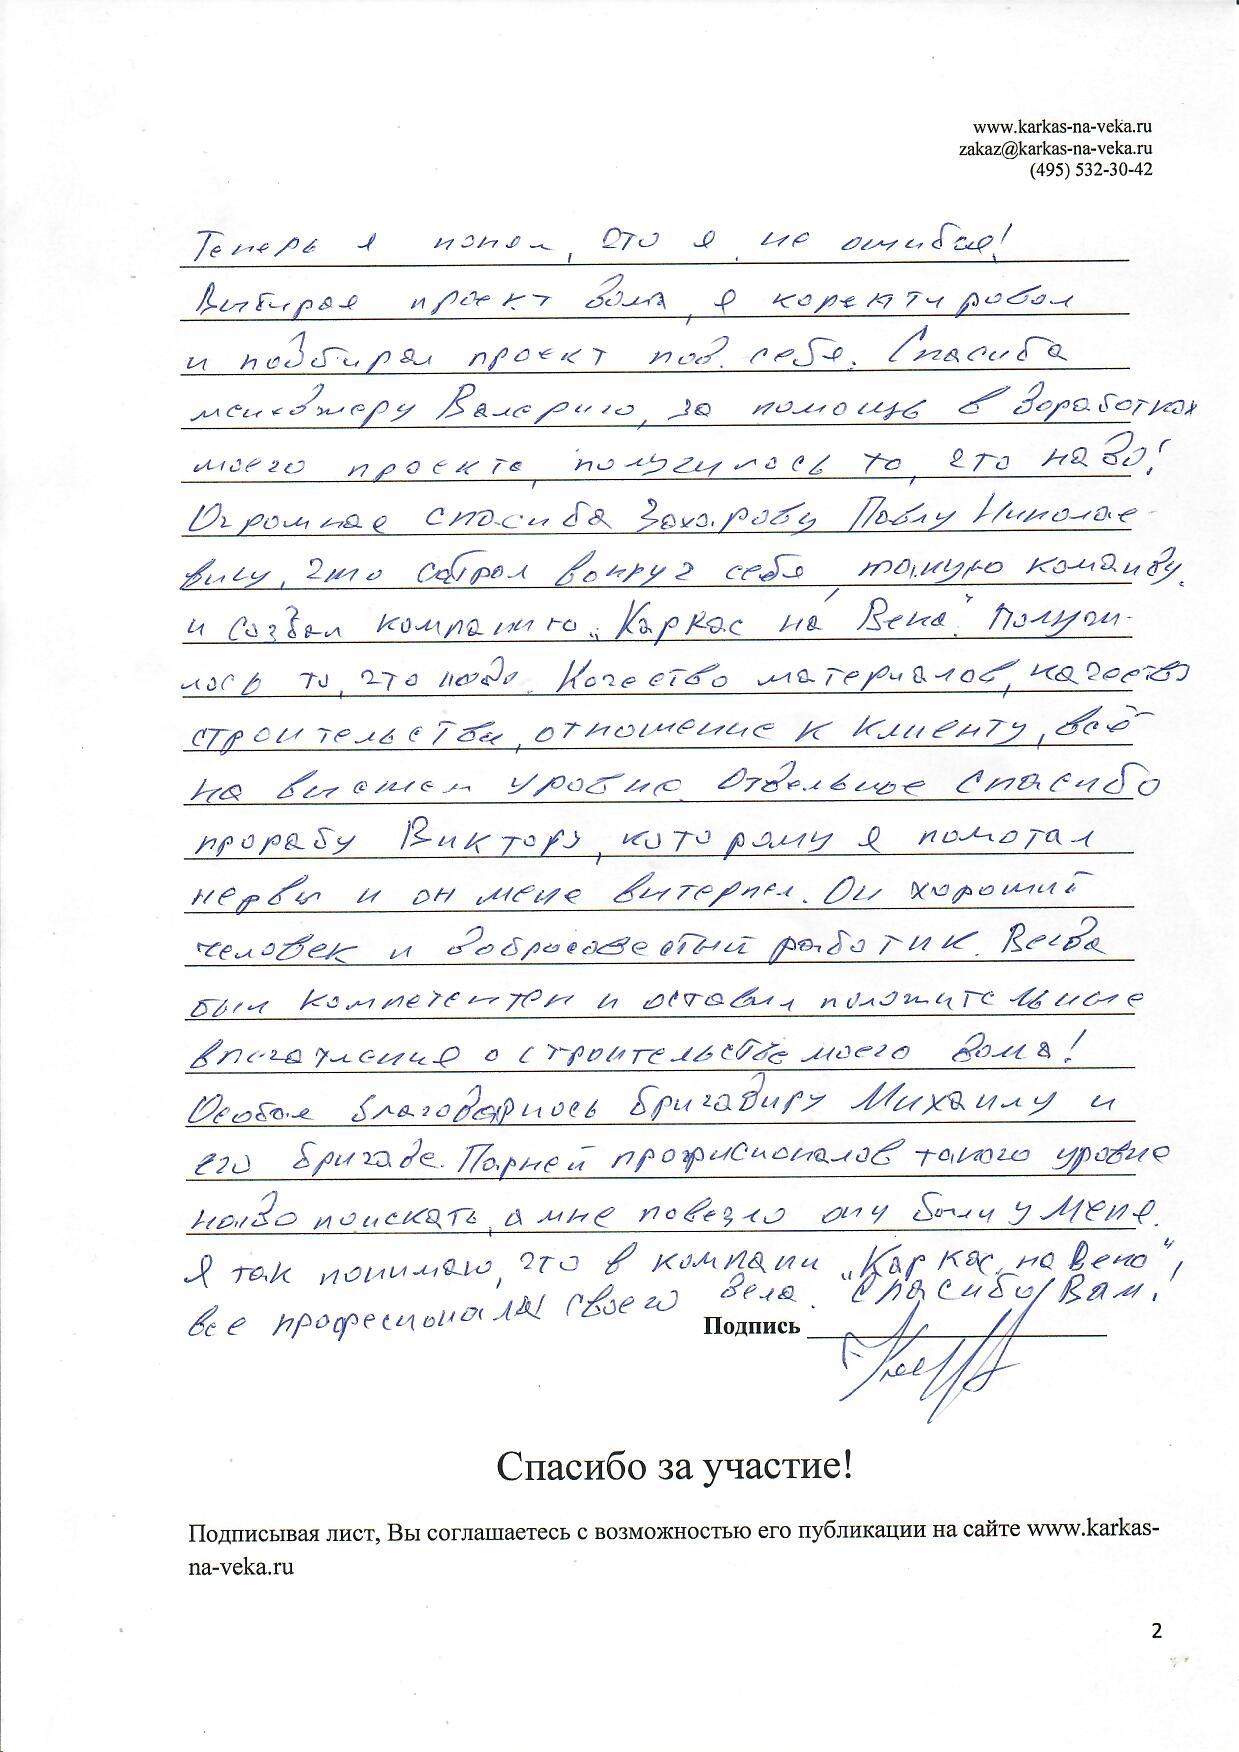 www.karkas-na-veka.ru
zakaz@karkas-na-veka.ru
(495) 532-30-42
Теперь я понял, что я не ошибся!
Выбирая проект дома, я коректировал
и подбирал проект под себя. Спасиба
менеджеру Валерию, за помощь в доработках
моего проекта, получилось то, что надо!
Огромная спасиба Захарову Павлу Николае-
вичу, что собрал вокруг себя, такую команду
и создал компанию „Каркас на Века". Получи-
лось то, что надо. Качество материалов, качество
строительства, отношение к клиенту, всё
на высшем уровне. Отдельное спасибо
прорабу Виктору, которому я помотал
нервы и он меня вытерпел. Он хороший
человек и добросовестый работик. Всегда
был компетентен и оставил положительные
впечатления о строительстве моего дома!
Особая благодарность бригадиру Михаилу и
его бригаде. Парней профисионалов такого уровня
надо поискать, а мне повезло они были у меня.
Я так понимаю, что в компани „Каркас на Века",
все професионалы своего дела. Спасибо Вам!
Подпись
Спасибо за участие!
Подписывая лист, Вы соглашаетесь с возможностью его публикации на сайте www.karkas-
na-veka.ru
2